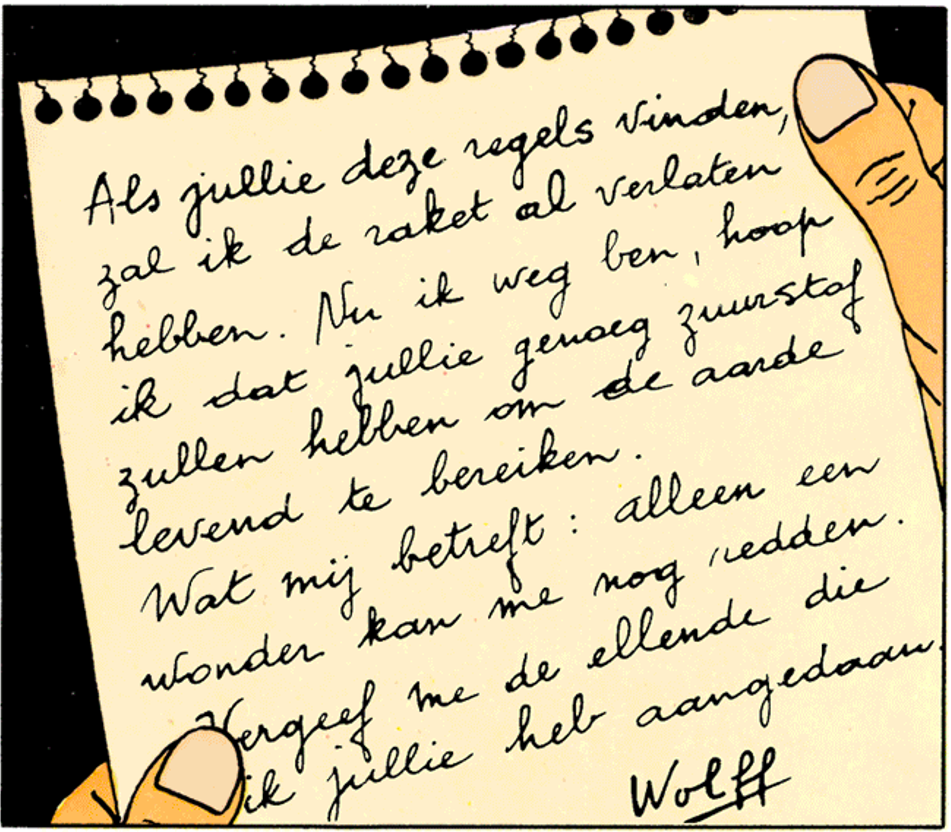 Als jullie deze regels vinden,
zal ik de raket al verlaten
hebben. Nu ik weg ben, hoop
ik dat jullie genoeg zuurstof
zullen hebben om de aarde
levend te bereiken.
Wat mij betreft : alleen een
wonder kan me nog redden.
Vergeef me de ellende die
ik jullie heb aangedaan.
Wolff